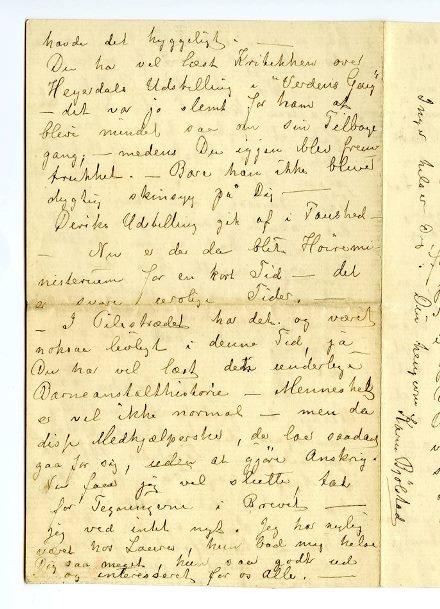 havde det hyggeligt. —
Du har vel læst Kritikken over
Heyerdals Udstilling i "Verdens Gang"
— det var jo slemt for ham at
blevi mindet saa om sin Tilbage
gang, — medens Du igjen blev frem
trukket. — Bare han ikke blevet
dygtig skinsyg på Dig —
Deriks Udstilling gik af i Taushed —
— Nu er de da blit Høiremi-
nisterium for en kort Tid — det
er svare urolige Tider. —
— I Pilestrædet har det og været
noksaa livligt i denne Tid, ja
Du har vel læst den underlige
Barneanstalthistorie — Mennesket
er vel ikke normal — men da
disse Medhjælperske, de lar saadant
gaa for sig, uden at gjøre Anskrig.
Nu faar jeg vel slutte, tak
for Tegningerne i Brevet —
jeg ved intet nyt. Jeg har nylig
været hos Laura, hun bad mig helse
Dig saa meget, hun saa godt ud
og interesseret for os Alle. —
Inger helser Dig.
Din hengivne Karen Bjølstad